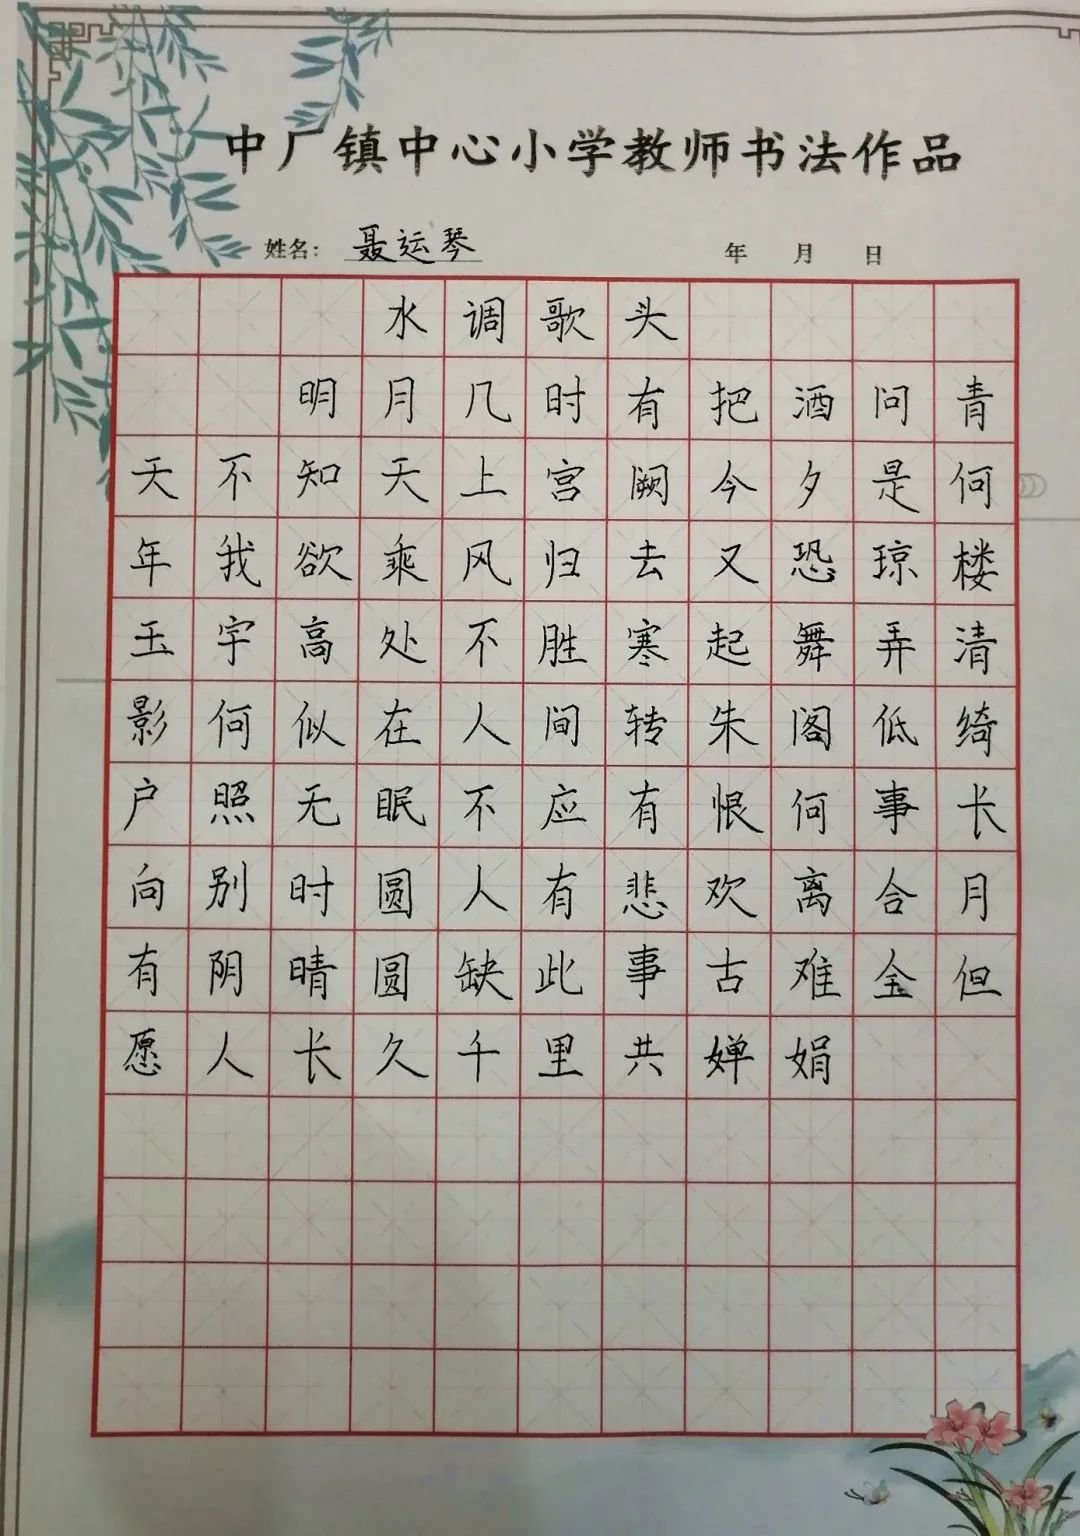 中厂镇中心小学教师书法作品
姓名：聂运琴 年 月 日
水调歌头
明月几时有把酒问青
天不知天上宫阙今夕是何
年我欲乘风归去又恐琼楼
玉宇高处不胜寒起舞弄清
影何似在人间转朱阁低绮
户照无眠不应有恨何事长
向别时圆人有悲欢离合月
有阴晴圆缺此事古难全但
愿人长久千里共婵娟